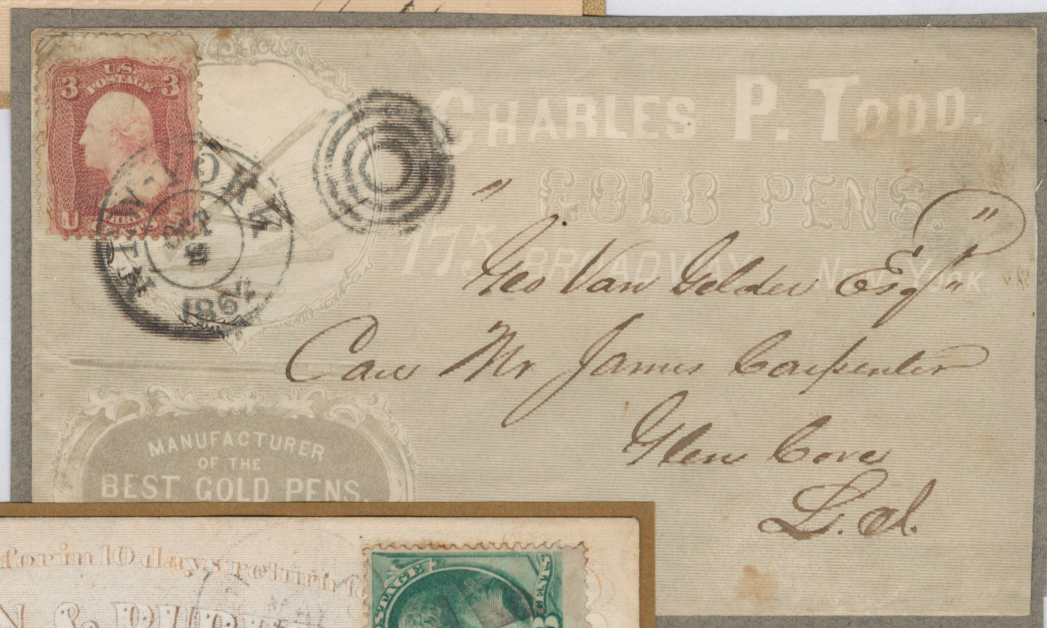 U.S.
POSTAGE
3 3
U
NEW-YORK
SEP
8
1862
CHARLES P. TODD.
GOLD PENS
175 BROADWAY NEW YORK.
Geo Van Gelder Esq"
Care Mr James Carpenter
Glen Cove
L. I.
MANUFACTURER
OF THE
BEST GOLD PENS.
in 10 days return to
POSTAGE
CENTS